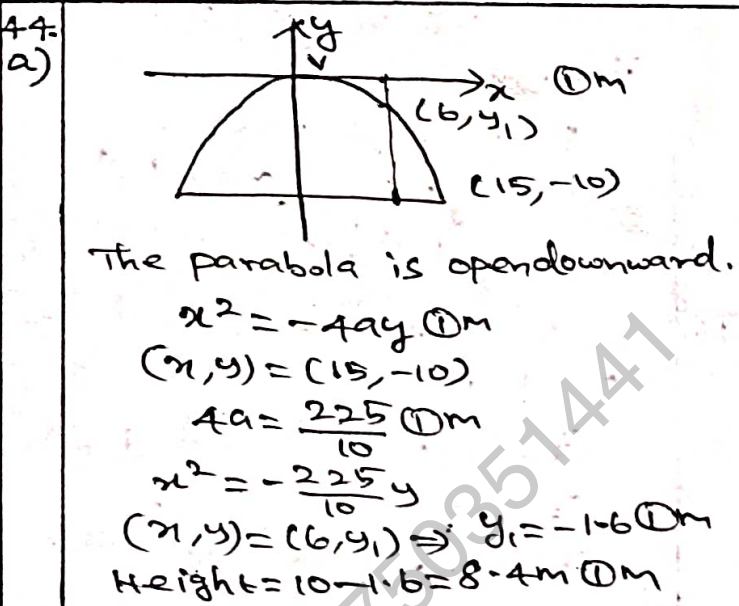 44.
a)
y
V
x ①m
(6,y₁)
(15,-10)
The parabola is opendownward.
x² = -4ay ①m
(x,y) = (15,-10)
4a = 225/10 ①m
x² = -225/10 y
(x,y) = (6,y₁) ⇒ y₁ = -1.6 ①m
Height = 10-1.6 = 8.4m ①m
750351441